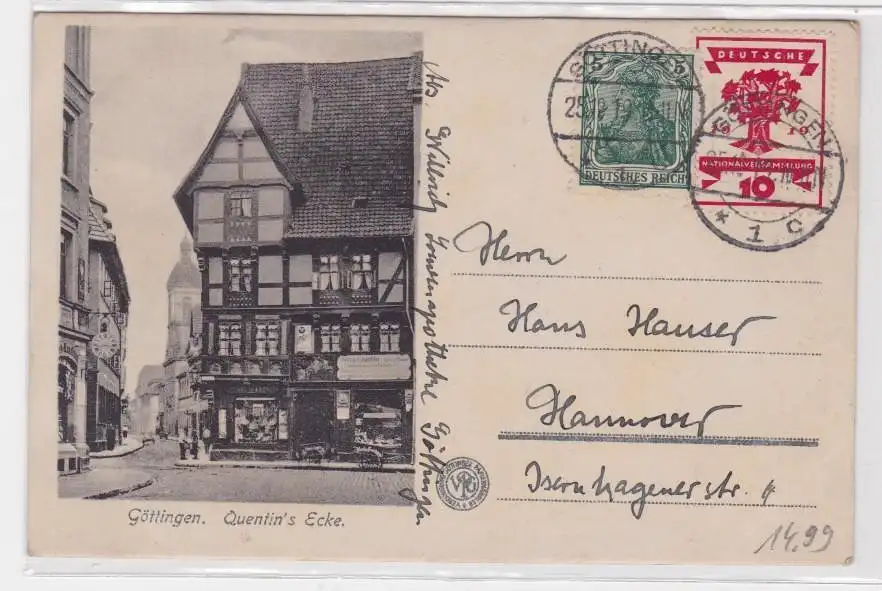 Göttingen. Quentin's Ecke.
Abs. Willrich Sonnenapotheke Göttingen
GÖTTINGEN
25.12.19
5 5
DEUTSCHES REICH
DEUTSCHE
19 19
NATIONALVERSAMMLUNG
10
GÖTTINGEN
* 1 c
Herrn
Hans Hauser
Hannover
Isernhagenerstr. 4
14,99